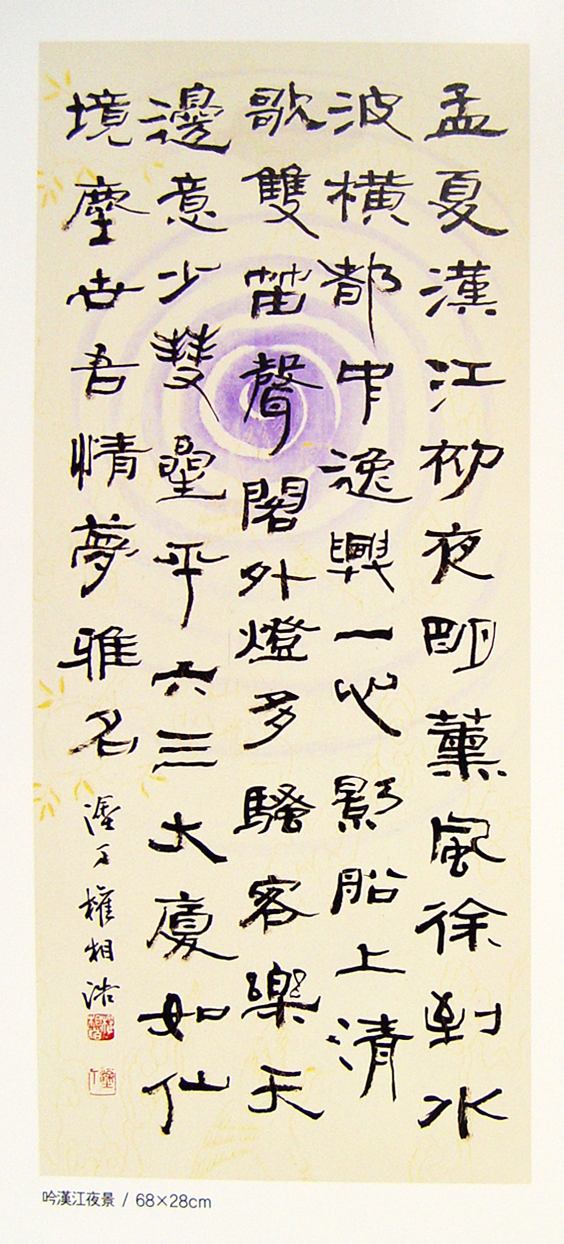 孟夏漢江初夜明薰風徐到水
波橫都中逸興一心影船上清
歌雙笛聲閣外燈多騷客樂天
邊意少雙星平六三大廈如仙
境塵世吾情夢雅名
塗丁權相浩
吟漢江夜景 / 68×28cm